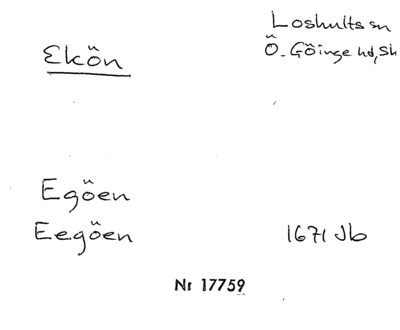 Loshults sn
Ekön
Ö. Göinge hd, Sk
Egöen
Eegöen 1671 Jb
Nr 17759